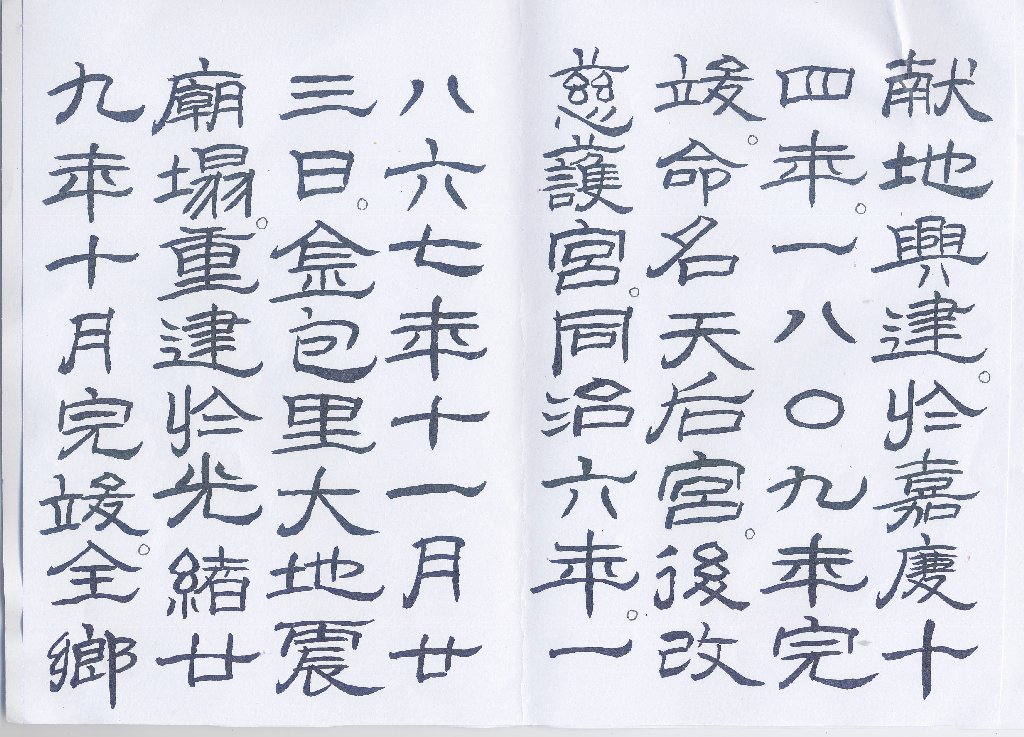 献地興建。於嘉慶十
四年。一八〇九年完
竣。命名天后宮。後改
慈護宮。同治六年。一
八六七年十一月廿
三日。金包里大地震
廟塌。重建於光緒廿
九年十月完竣。全鄉